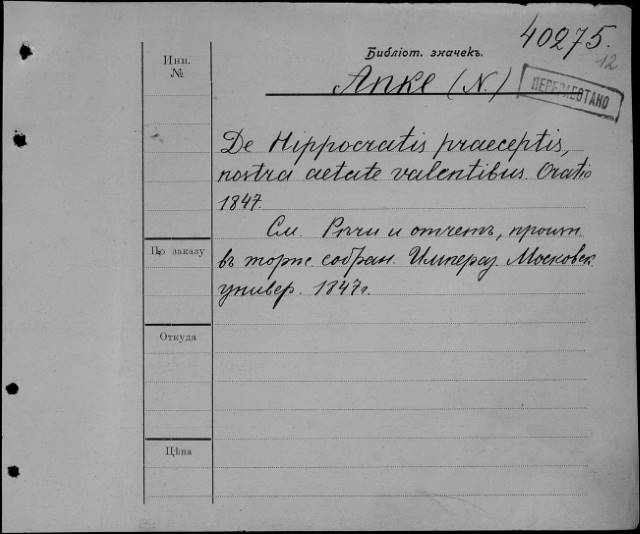 40275.
12
Библіот. значекъ.
Инв.
№
Anke (N.)
ПЕРЕРАБОТАНО
De Hippocratis praeceptis,
nostra aetate valentibus. Oratio
1847.
См. Рѣчи и отчетъ, произн.
въ торж. собран. Императ. Московск.
универ. 1847г.
По заказу
Откуда
Цѣна